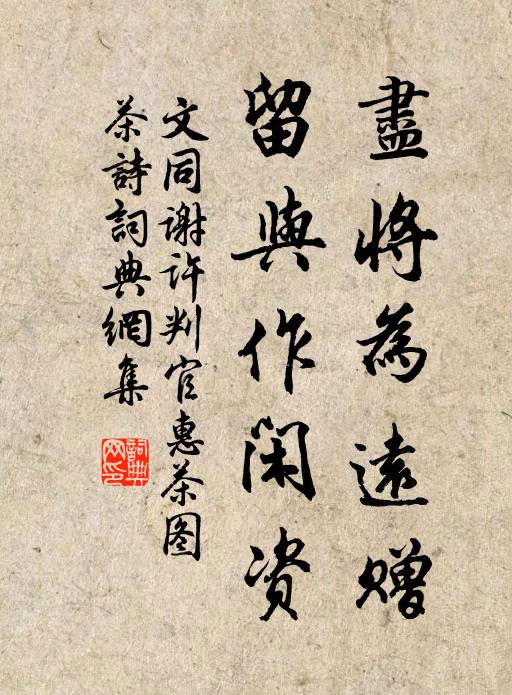 盡將為遠贈
留與作閑資
文同謝許判官惠茶图
茶詩詞典網集
詞典網印